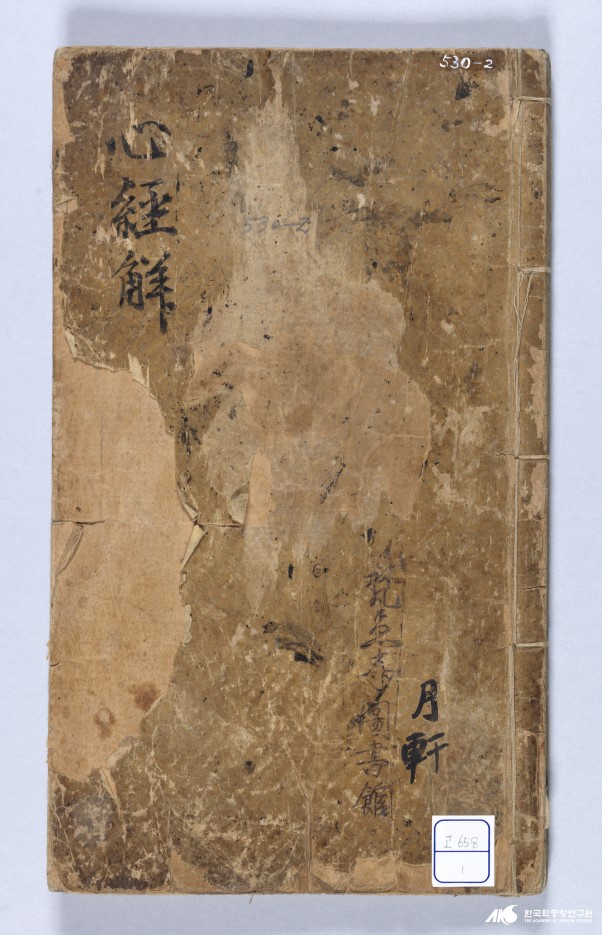 530-2
心經解
530-2
書館
月軒
I 658
1
AKS 한국학중앙연구원
THE ACADEMY OF KOREAN STUDIES